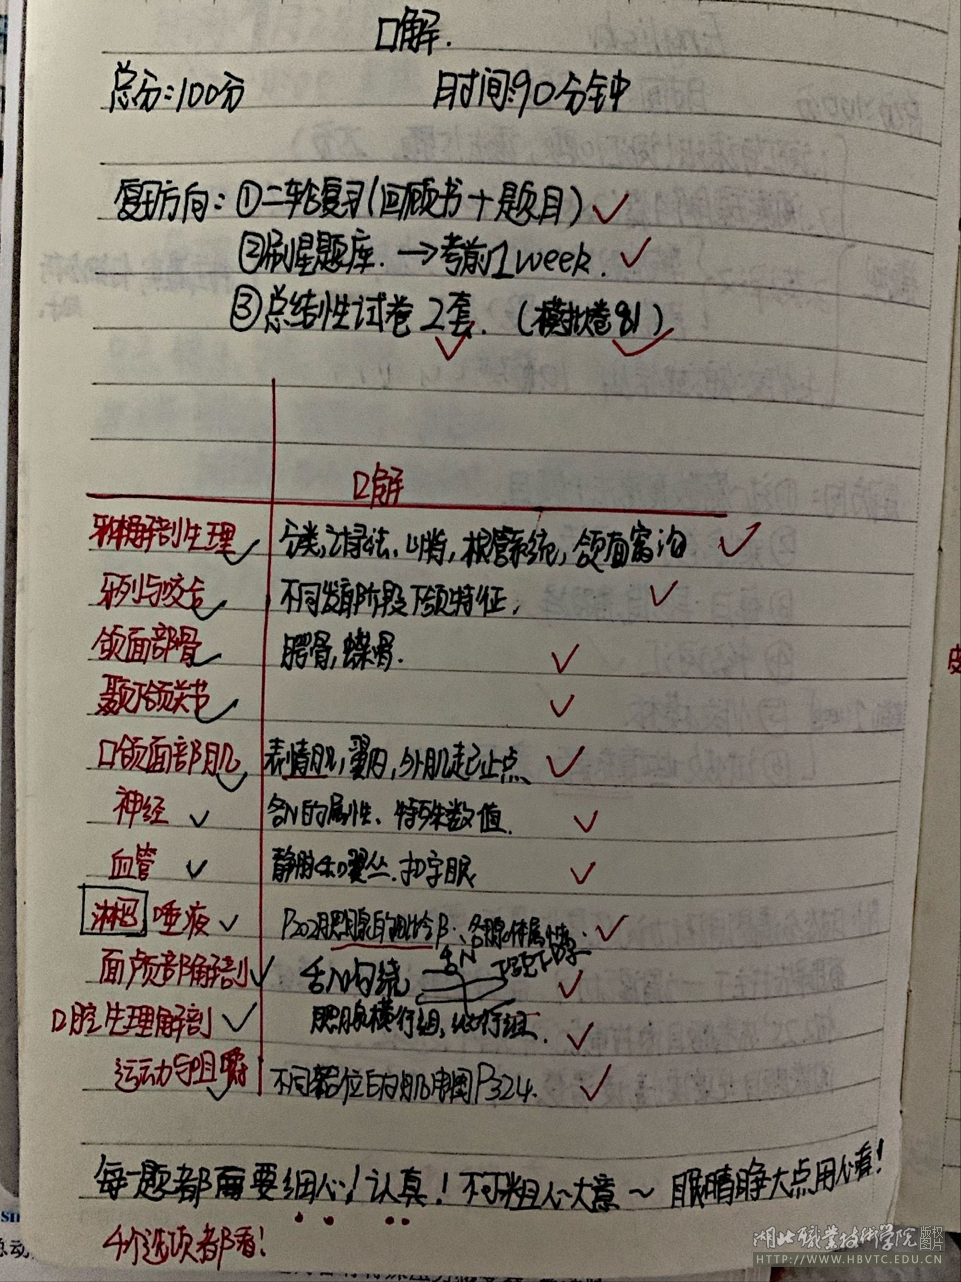 口解.
总分:100分 时间:90分钟
复习方向: ①二轮复习(回顾书+题目) ✓
②刷星题库. →考前1week. ✓
③总结性试卷2套. (模拟卷81)
口解
牙体解剖生理 分类,记录法、凹凿,根管系统,颌面窝沟
牙列与咬合 不同发育阶段下颌特征,
颌面部骨 腭骨,蝶骨.
颞下颌关节
口颌面部肌 表情肌,翼内,外肌起止点
神经 各N的属性、特殊数值.
血管 静脉 翼丛.
淋巴 唾液 P202 各腺体属性.
面颈部解剖 舌N勾绕
舌N
口腔生理解剖 横行组,纵行组
运动与咀嚼 不同 位时肌电图P324.
每一题都需要细心!认真!不可粗心大意~眼睛睁大点用心看!
4个选项都看!
湖北职业技术学院 版权图片
HTTP://WWW.HBVTC.EDU.CN